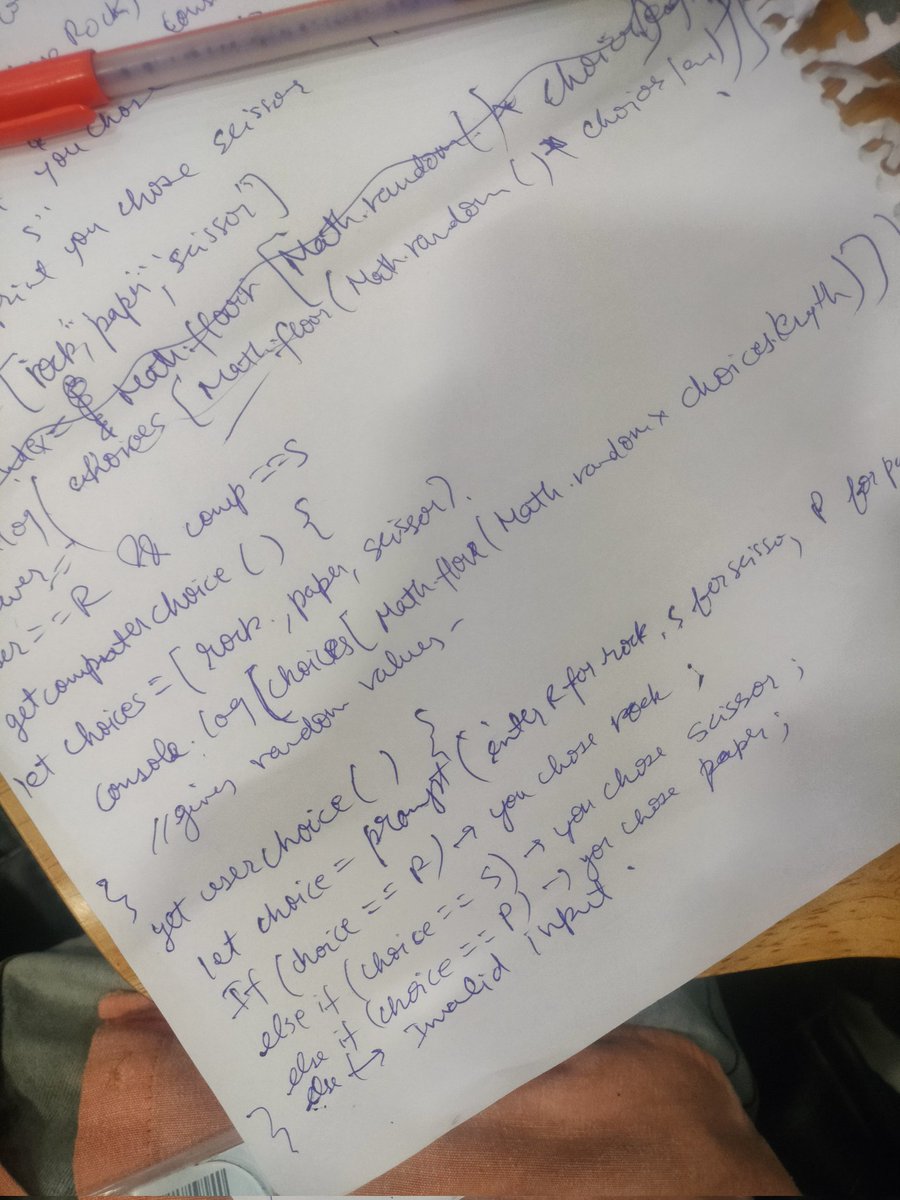 Rock)
you chose
s"
print you chose scissor
["rock", "paper", "scissor"]
index = Math.floor [Math.random() *
log( choices [Math.floor (Math.random() * choices
user==R && comp==S
getcomputerchoice () {
let choices = [rock, paper, scissor].
console.log [choices[Math.floor(Math.random x choices.length)])
//gives random values -
}
get userchoice () {
let choice = prompt (enter R for rock, S for scissor, P for
If (choice == R) → you chose rock ;
else if (choice == S) → you chose scissor ;
else if (choice == P) → you chose paper ;
else → Invalid input.
}